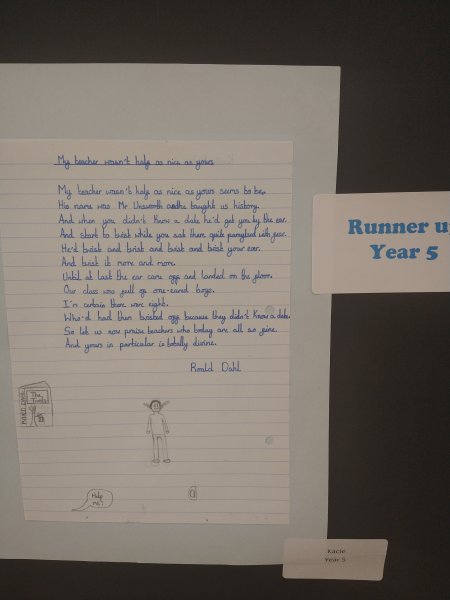 My teacher wasn't half as nice as yours
My teacher wasn't half as nice as yours seems to be.
His name was Mr Unsworth and he taught us history.
And when you didn't know a date he'd get you by the ear.
And start to twist while you sat there quite paralysed with fear.
He'd twist and twist and twist and twist your ear.
And twist it more and more.
Until at last the ear came off and landed on the floor.
Our class was full of one-eared boys.
I'm certain there were eight.
Who'd had them twisted off because they didn't know a date.
So let us now praise teachers who today are all so fine.
And yours in particular is totally divine.
Roald Dahl
ROALD DAHL
The Twits
Help me!
Runner u
Year 5
Kacie
Year 5